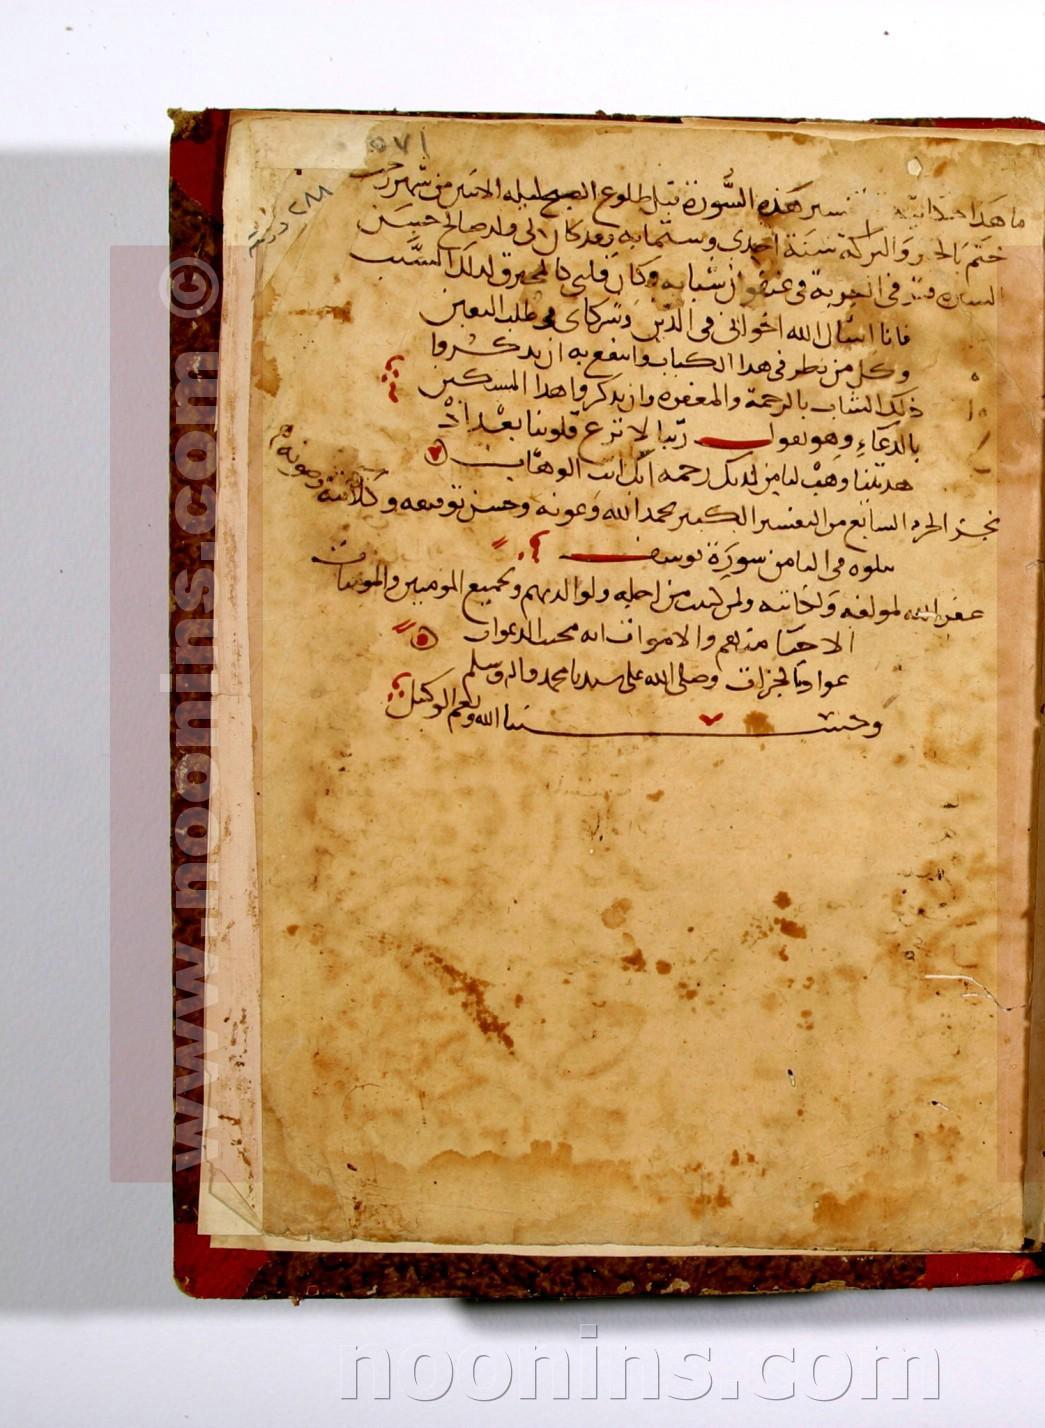 ٥٧١
٢٨٨
تفسير هذه السُّورة قبل طلوع الصبح ليلة الاثنين من شهر رجب
ختم بالخير والبركة سنة احدي وستماية وقد كان لي ولد صالح حسن
السيرة فتوفى في الغربة في عنفوان شبابه وكان قلبي كالمحترق لذلك السَّبب
فانا اسال الله اخواني في الدين وشركاي في طلب اليقين
وكل من نظر في هذا الكتاب وانتفع به ان يذكروا
ذلك الشاب بالرحمة والمغفرة وان يذكروا هذا المسكين
بالدعاء وهو يقول ربنا لا تزغ قلوبنا بعد اذ
هديتنا وهب لنا من لدنك رحمة انك انت الوهاب
نجز الجزء السابع من التفسير الكبير بحمد الله وعونه وحسن توفيقه وكلائته وصونه
يتلوه في الثامن سورة يوسف
غفر الله لمولفه ولكاتبه ولمن كتب من اجله ولوالديهم ولجميع المومنين والمومنات
الاحيا منهم والاموات انه مجيب الدعوات
وصلى الله على سيدنا محمد واله وسلم
وحسبنا الله ونعم الوكيل
www.noonins.com ©
noonins.com